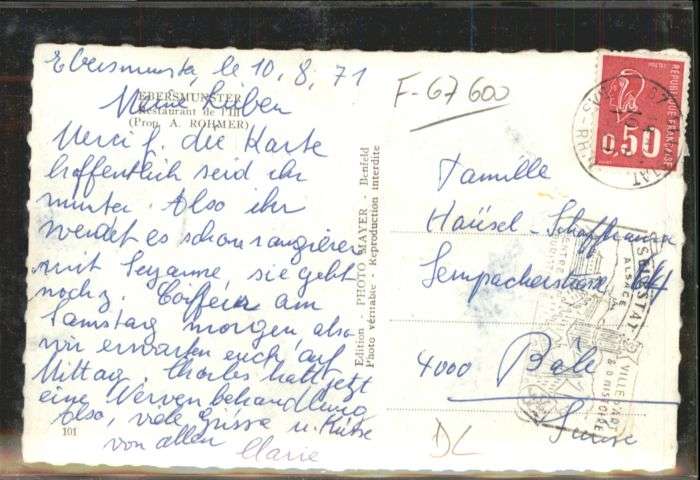 Ebersmunster, le 10.8.71
Meine Lieben
EBERSMUNSTER
Restaurant de l'Ill
(Prop. A. ROHMER)
Merci f. die Karte
hoffentlich seid ihr
munter. Also ihr
werdet es schon rangieren
mit Suzanne, sie geht
noch z. Coiffeur am
Samstag morgen, also
wir erwarten euch auf
Mittag. Charles hatt jetzt
eine Nervenbehandlung
Also, viele Grüsse u. Küsse
von allen Marie
101
Edition - PHOTO MAYER - Benfeld
Photo véritable - Reproduction interdite
F-67600
REPUBLIQUE FRANÇAISE
0,50
Familie
Haüsel-Schaffhauser
Sempacherstrasse
4000 Bâle
Suisse
DL
SELESTAT
ALSACE
VILLE D'ART